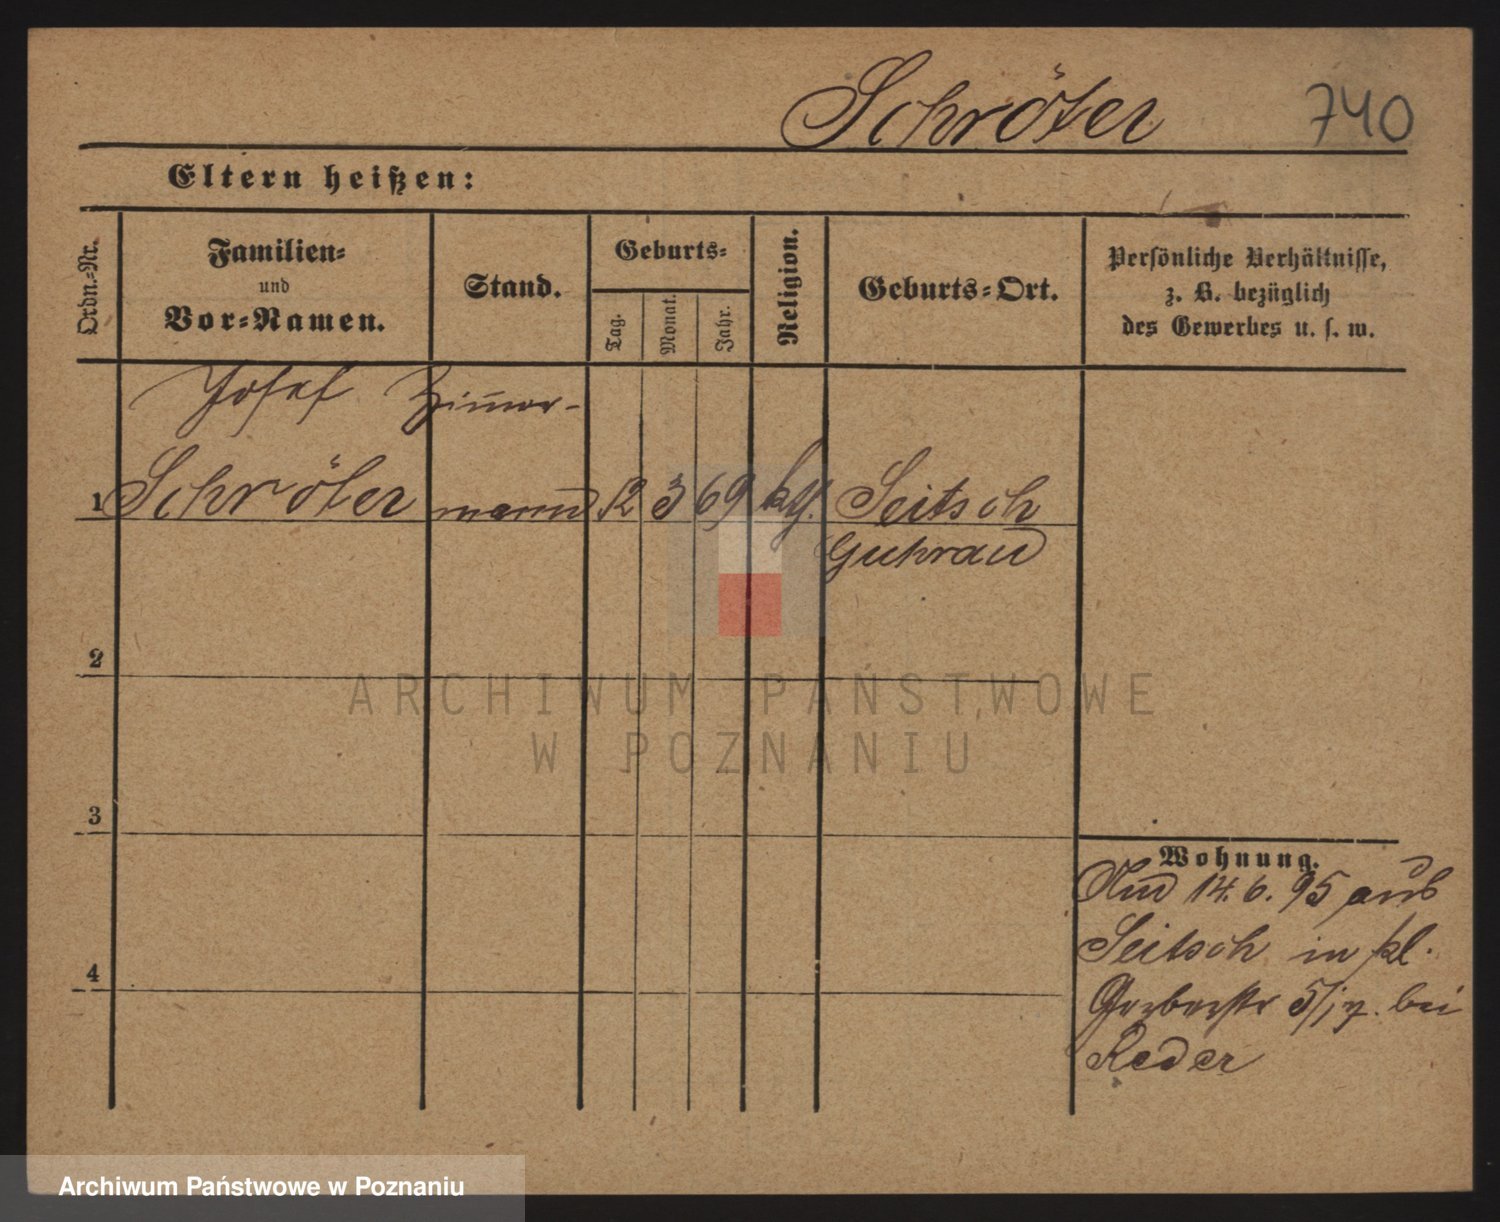 Schröter 740
Eltern heißen:
Ordn.-Nr.
Familien-
und
Vor-Namen.
Stand.
Geburts-
Tag.
Monat.
Jahr.
Religion.
Geburts-Ort.
Persönliche Verhältnisse,
z. B. bezüglich
des Gewerbes u. s. w.
Josef Zimer-
1 Schröter mann 12 3 69 kth. Seitsch
Guhrau
2
3
4
Wohnung.
14.6.95 aus
Seitsch in kl.
Gerberstr 5/7 bei
Reder
ARCHIWUM PAŃSTWOWE
W POZNANIU
Archiwum Państwowe w Poznaniu